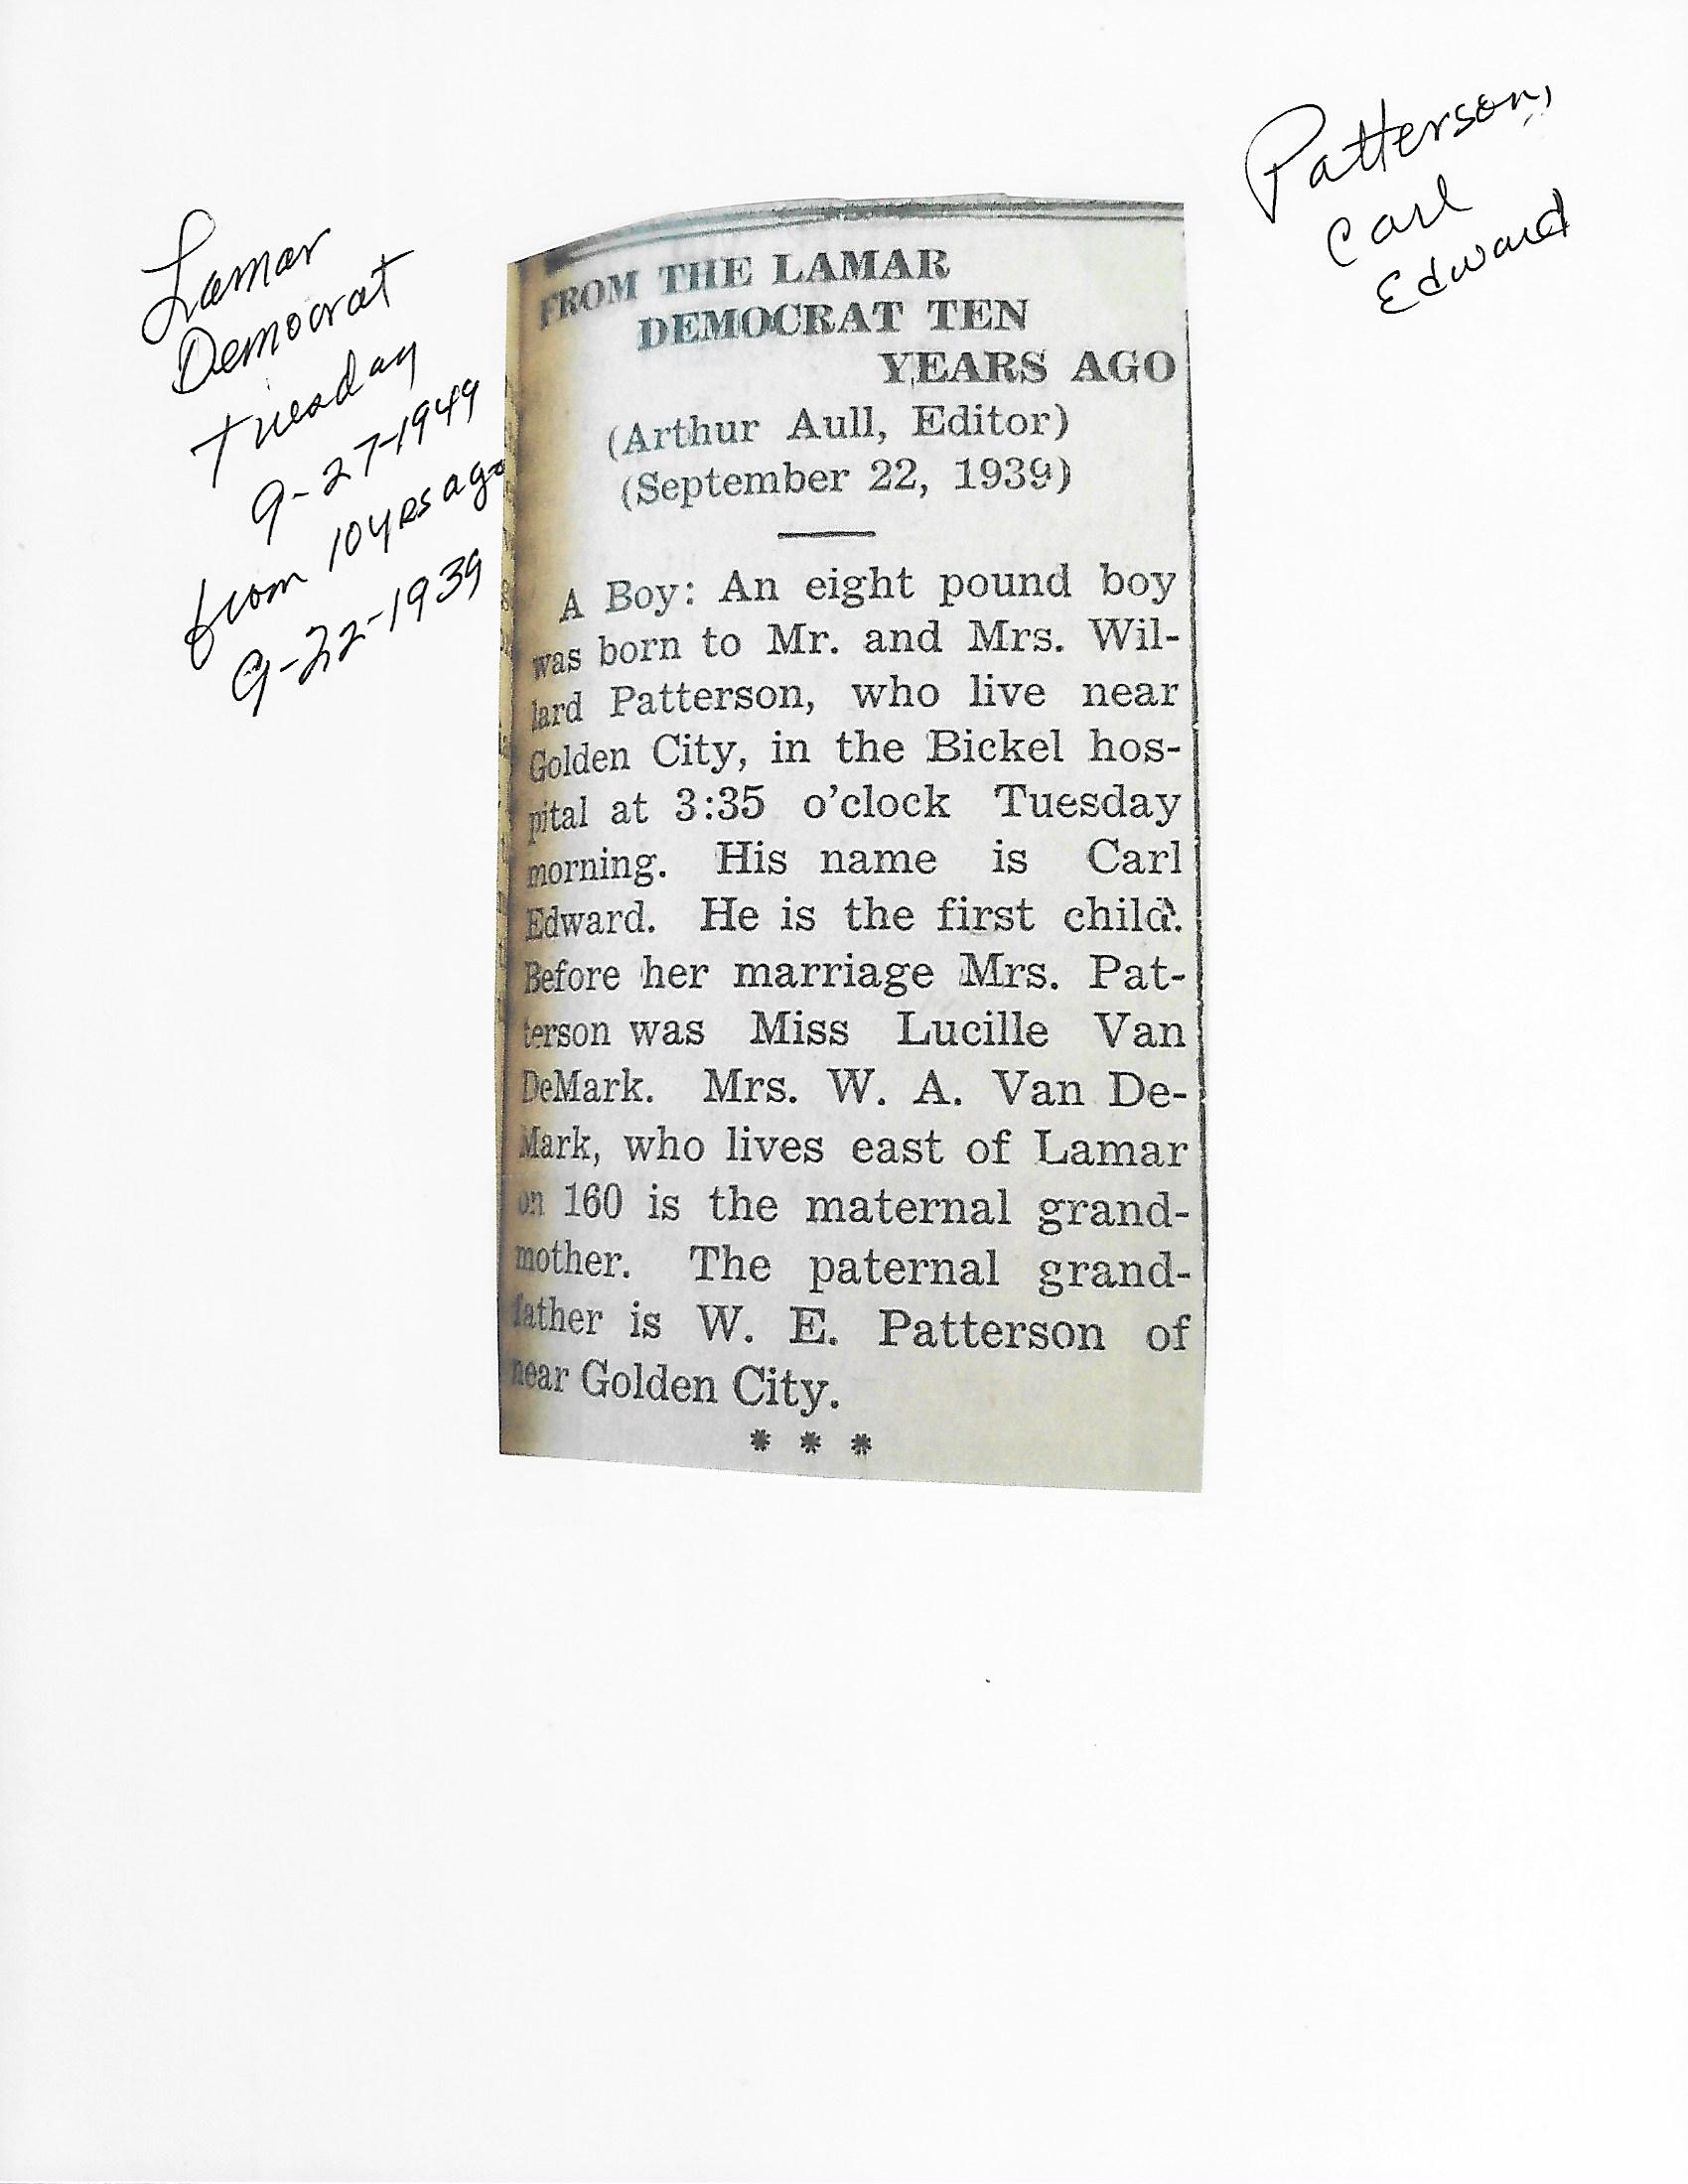 Patterson,
Carl
Edward
Lamar
Democrat
Tuesday
9-27-1949
from 10 yrs ago
9-22-1939
FROM THE LAMAR
DEMOCRAT TEN
YEARS AGO
(Arthur Aull, Editor)
(September 22, 1939)
A Boy: An eight pound boy
was born to Mr. and Mrs. Wil-
lard Patterson, who live near
Golden City, in the Bickel hos-
pital at 3:35 o'clock Tuesday
morning. His name is Carl
Edward. He is the first child.
Before her marriage Mrs. Pat-
terson was Miss Lucille Van
DeMark. Mrs. W. A. Van De-
Mark, who lives east of Lamar
on 160 is the maternal grand-
mother. The paternal grand-
father is W. E. Patterson of
near Golden City.
* * *